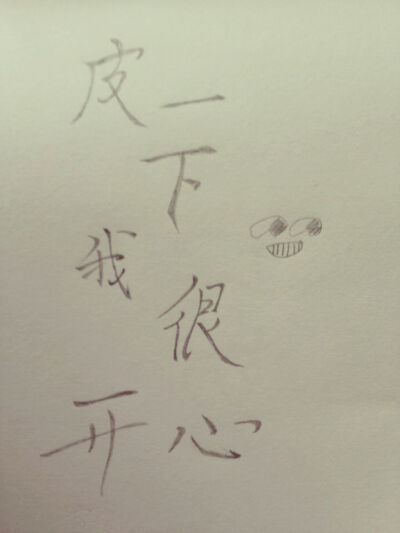 皮一下
我很
开心